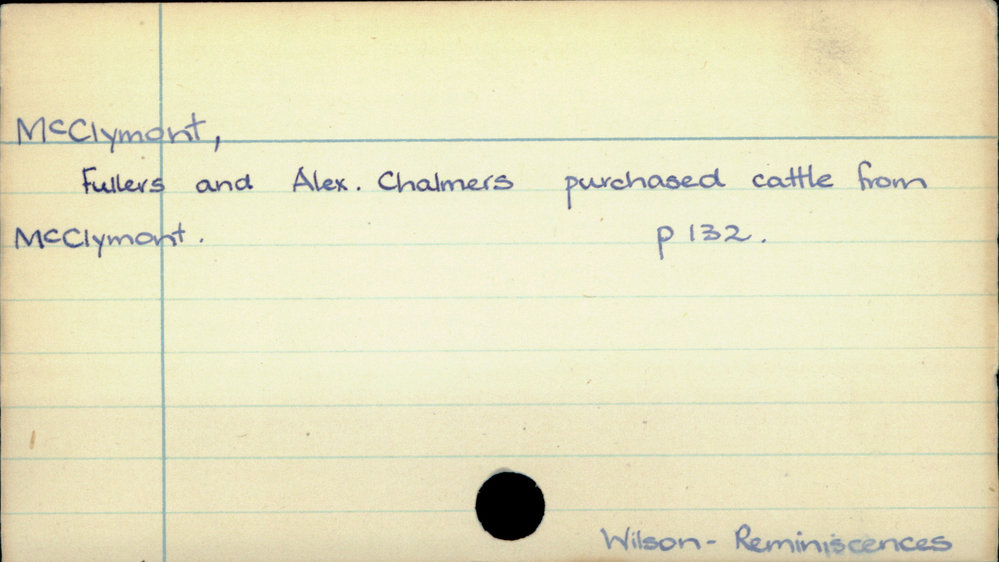 McClymont,
Fullers and Alex. Chalmers purchased cattle from
McClymont. p 132.
Wilson - Reminiscences